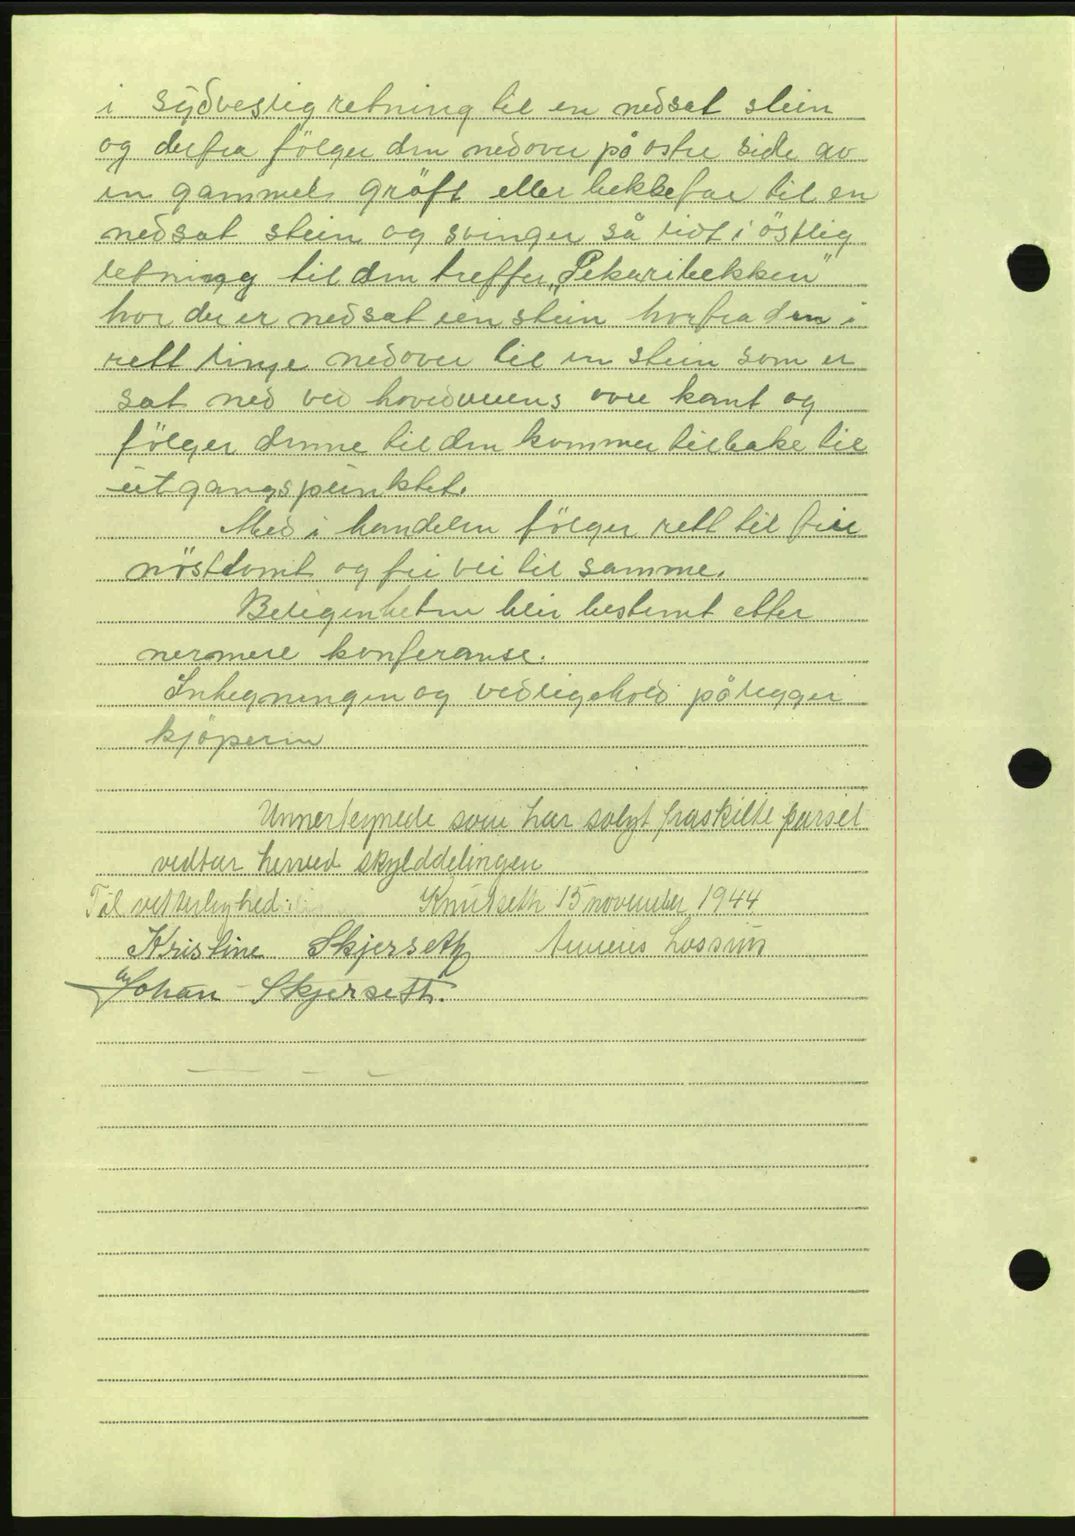 i sydvestlig retning til en nedsat stein
og derfra følger den nedover på østre side av
en gammel grøft eller bekkefar til en
nedsat stein og svinger så lidt i østlig
retning til den treffer „Pekaribekken"
hvor der er nedsat en stein hvorfra den i
rett linje nedover til en stein som er
sat ned ved hovedveiens øvre kant og
følger denne til den kommer tilbake til
utgangspunktet.
Med i handelen følger rett til frie
nøsttomt og fri vei til samme.
Beligenheten blir bestemt etter
nermere konferanse.
Inhegningen og vedligehold pålegger
kjøperen
Unnertegnede som har solgt fraskilte parsel
vedtar herved skylddelingen
Til vitterlighed: Knutseth 15 november 1944
Kristine Skjerseth
Johan Skjerseth.